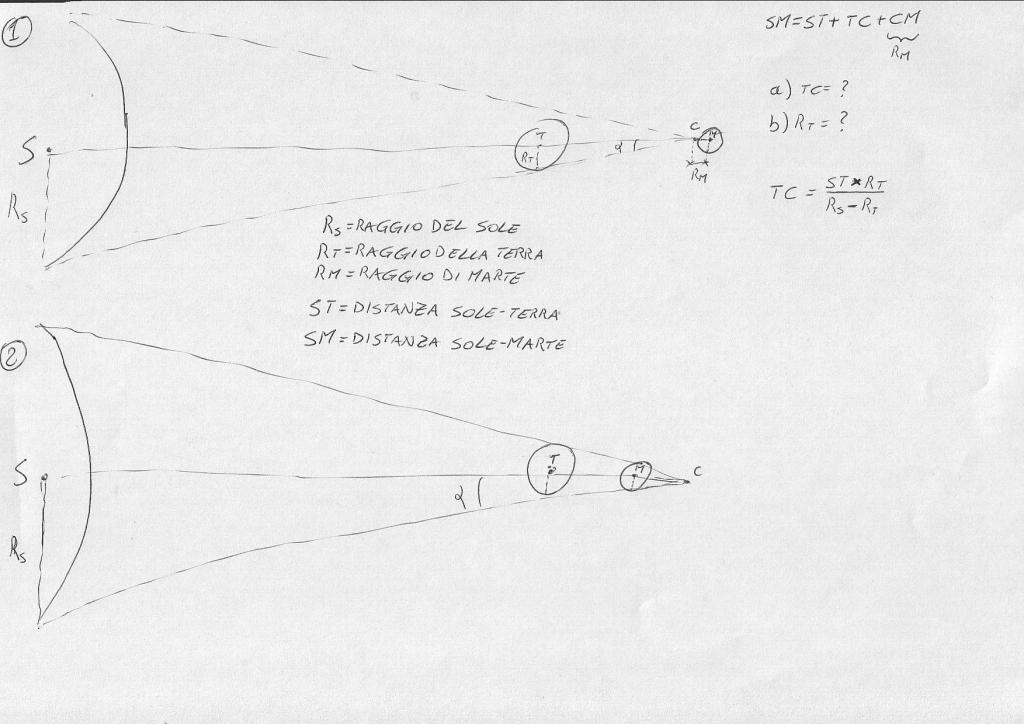 1
SM=ST+TC+CM
RM
a) TC= ?
b) RT= ?
TC = ST*RT
RS-RT
S
RS
T
RT
α
C
M
RM
RS=RAGGIO DEL SOLE
RT=RAGGIO DELLA TERRA
RM=RAGGIO DI MARTE
ST=DISTANZA SOLE-TERRA
SM=DISTANZA SOLE-MARTE
2
S
RS
α
T
M
C